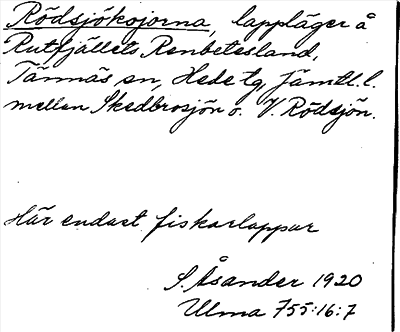 Rödsjökojorna, lappläger å
Rutfjällets Renbetesland,
Tännäs sn, Hede tg, Jämtl. l.
mellan Skedbrosjön o. V. Rödsjön.
Här endast fiskarlappar
S. Åsander 1920
Ulma 755:16:7